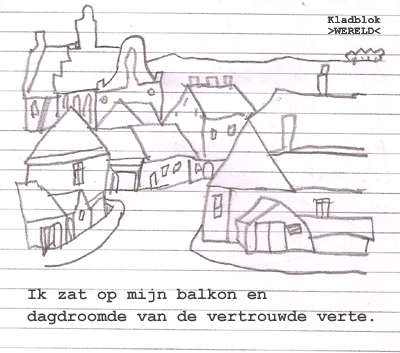 Kladblok
>WERELD<
Ik zat op mijn balkon en
dagdroomde van de vertrouwde verte.